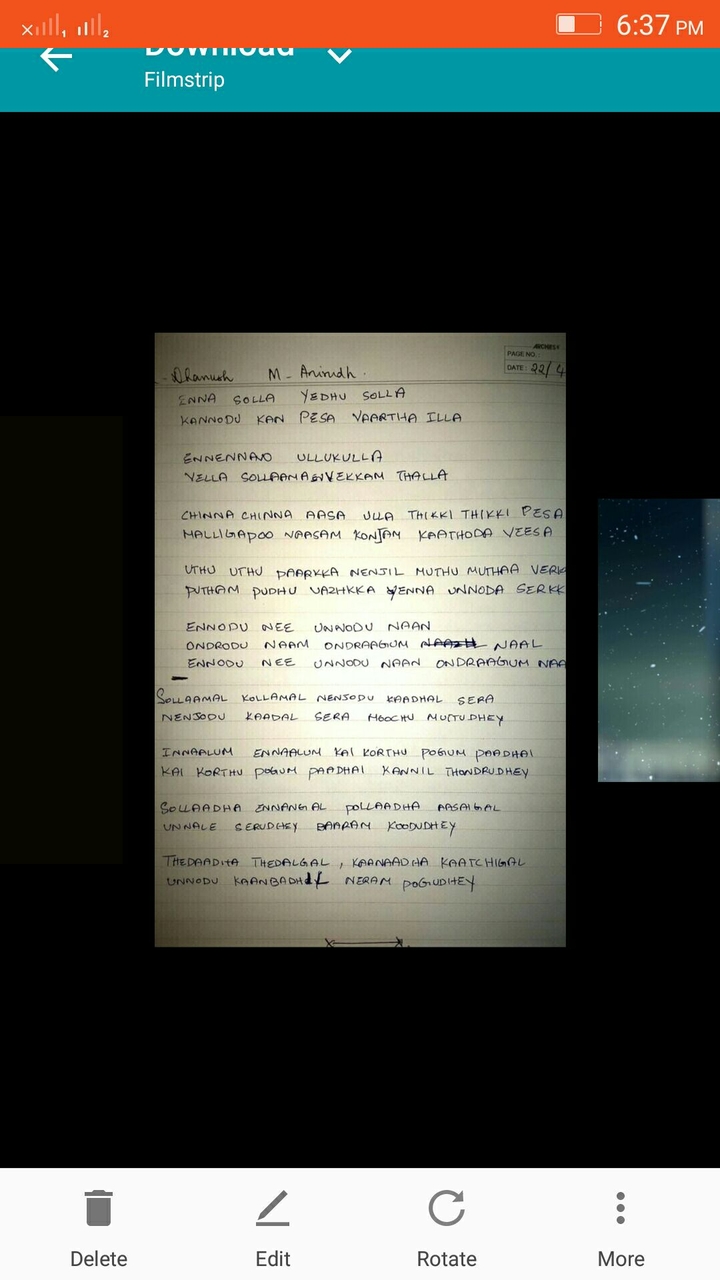 6:37 PM
Download
Filmstrip
ARCHIES
PAGE NO.:
DATE: 22/4
- Dhanush M - Anirudh.
ENNA SOLLA YEDHU SOLLA
KANNODU KAN PESA VAARTHA ILLA
ENNENNAVO ULLUKULLA
VELLA SOLLAAMA EN VEKKAM THALLA
CHINNA CHINNA AASA ULLA THIKKI THIKKI PESA
MALLIGAPOO VAASAM KONJAM KAATHODA VEESA
UTHU UTHU PAARKKA NENJIL MUTHU MUTHAA VERK
PUTHAM PUDHU VAZHKKA YENNA UNNODA SERKK
ENNODU NEE UNNODU NAAN
ONDRODU NAAM ONDRAAGUM NAAL
ENNODU NEE UNNODU NAAN ONDRAAGUM NAA
SOLLAAMAL KOLLAMAL NENJODU KAADHAL SERA
NENJODU KAADAL SERA MOOCHU MUTUDHEY
INNAALUM ENNAALUM KAI KORTHU POGUM PAADHAI
KAI KORTHU POGUM PAADHAI KANNIL THONDRUDHEY
SOLLAADHA ENNANGAL POLLAADHA AASAIGAL
UNNALE SERUDHEY BAARAM KOODUDHEY
THEDAADHA THEDALGAL, KAANAADHA KAATCHIGAL
UNNODU KAANBADHIL NERAM POGUDHEY
Delete Edit Rotate More